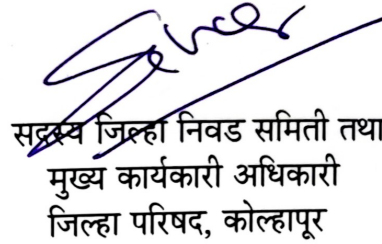 सदस्य जिल्हा निवड समिती तथा
मुख्य कार्यकारी अधिकारी
जिल्हा परिषद, कोल्हापूर